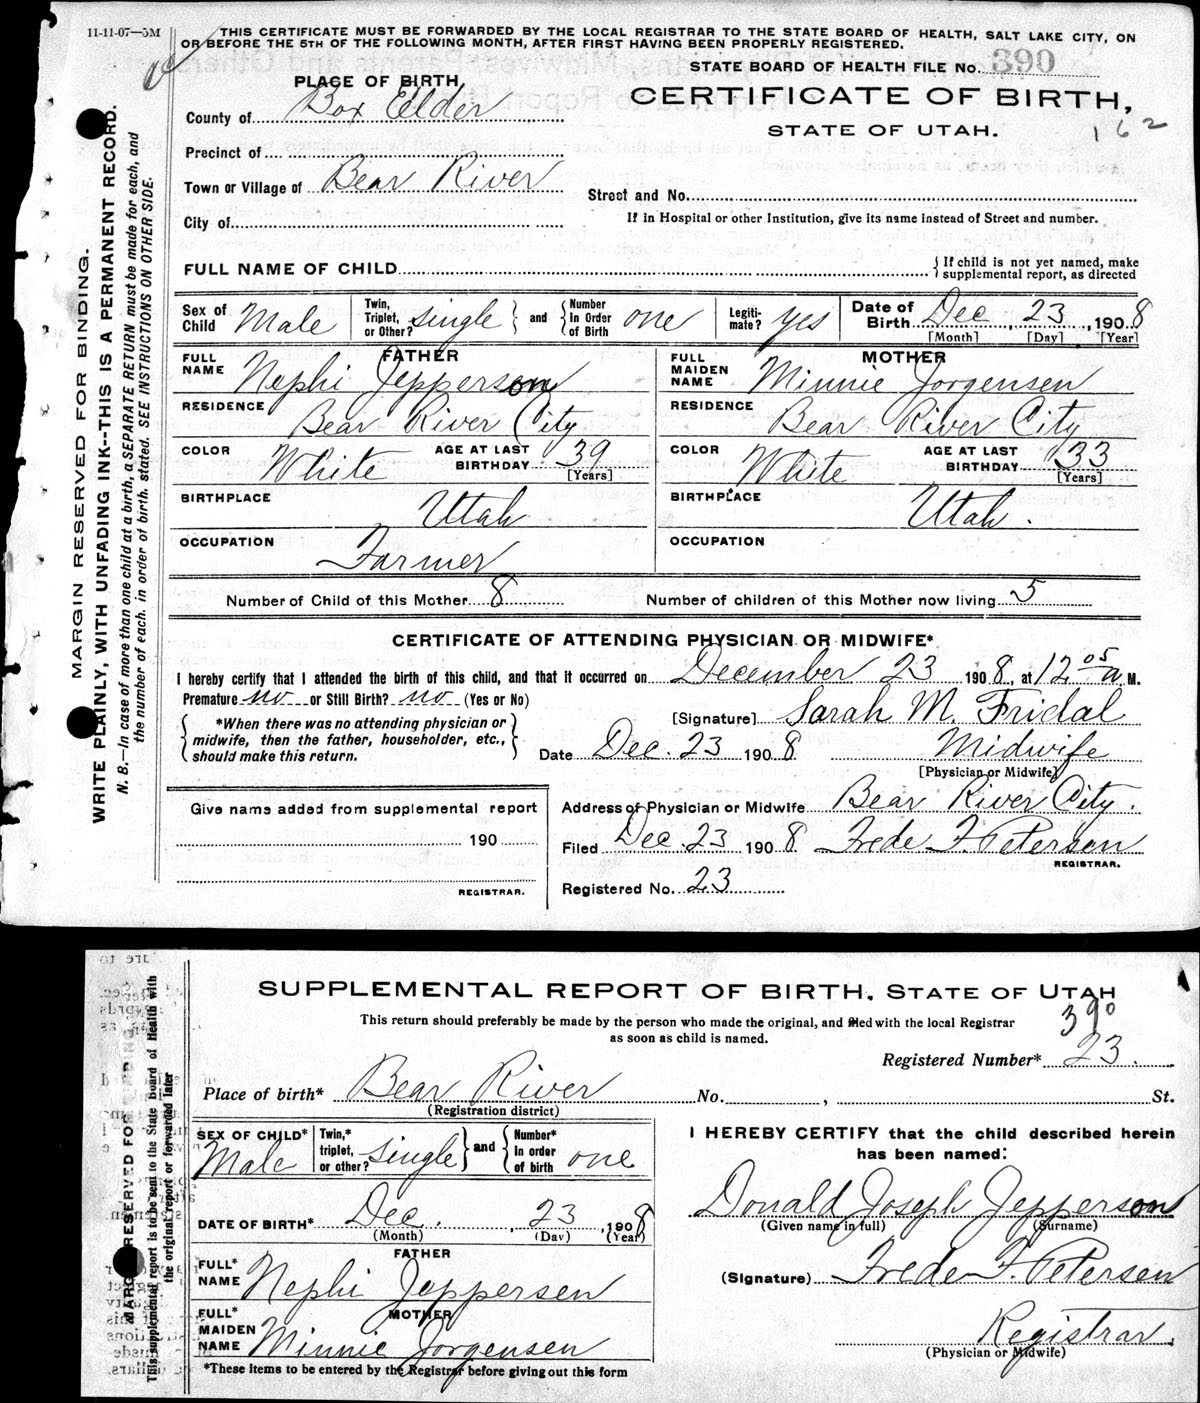 11-11-07—5M
THIS CERTIFICATE MUST BE FORWARDED BY THE LOCAL REGISTRAR TO THE STATE BOARD OF HEALTH, SALT LAKE CITY, ON
OR BEFORE THE 5TH OF THE FOLLOWING MONTH, AFTER FIRST HAVING BEEN PROPERLY REGISTERED.
STATE BOARD OF HEALTH FILE No. 390
PLACE OF BIRTH,
CERTIFICATE OF BIRTH,
County of Box Elder
STATE OF UTAH.
162
Precinct of
Town or Village of Bear River
Street and No.
City of
If in Hospital or other Institution, give its name instead of Street and number.
FULL NAME OF CHILD { If child is not yet named, make supplemental report, as directed
Sex of Child Male Twin, Triplet, or Other? single } and { Number In Order of Birth one Legitimate? yes Date of Birth Dec, 23, 1908
[Month] [Day] [Year]
FATHER
MOTHER
FULL NAME Nephi Jepperson
FULL MAIDEN NAME Minnie Jorgensen
RESIDENCE Bear River City
RESIDENCE Bear River City
COLOR White AGE AT LAST BIRTHDAY 39 [Years]
COLOR White AGE AT LAST BIRTHDAY 33 [Years]
BIRTHPLACE Utah
BIRTHPLACE Utah.
OCCUPATION Farmer
OCCUPATION
Number of Child of this Mother 8
Number of children of this Mother now living 5
CERTIFICATE OF ATTENDING PHYSICIAN OR MIDWIFE*
I hereby certify that I attended the birth of this child, and that it occurred on December 23 1908, at 12 05 a M.
Premature no or Still Birth? no (Yes or No)
[Signature] Sarah M. Fridal
{ *When there was no attending physician or midwife, then the father, householder, etc., should make this return. }
Date Dec. 23 1908
Midwife
[Physician or Midwife]
Give name added from supplemental report
190
REGISTRAR.
Address of Physician or Midwife Bear River City.
Filed Dec. 23 1908. Frede F. Peterson
REGISTRAR.
Registered No. 23
MARGIN RESERVED FOR BINDING.
WRITE PLAINLY, WITH UNFADING INK--THIS IS A PERMANENT RECORD.
N. B.—In case of more than one child at a birth, a SEPARATE RETURN must be made for each, and
the number of each, in order of birth, stated. SEE INSTRUCTIONS ON OTHER SIDE.
SUPPLEMENTAL REPORT OF BIRTH, STATE OF UTAH
This return should preferably be made by the person who made the original, and filed with the local Registrar
as soon as child is named.
390
Registered Number* 23.
Place of birth* Bear River No. , St.
(Registration district)
SEX OF CHILD* Male Twin,* triplet, or other? single } and { Number* In order of birth one
I HEREBY CERTIFY that the child described herein
has been named:
Donald Joseph Jepperson
(Given name in full) (Surname)
DATE OF BIRTH* Dec., 23, 1908
(Month) (Day) (Year)
FATHER
FULL* NAME Nephi Jeppersen
(Signature) Frede F. Petersen
MOTHER
FULL* MAIDEN NAME Minnie Jorgensen
Registrar.
(Physician or Midwife)
*These items to be entered by the Registrar before giving out this form
RESERVED FOR
This supplemental report is to be sent to the State Board of Health with
the original report or forwarded later